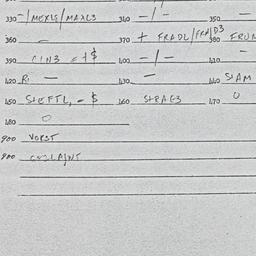 330 -/MEXLS/MAXLS 340 -/- 350 -
360 - 370 + FRADL/FRAD3 380 FRUN
390 CIN3 = + $ 400 -/- 410 -
420 R - 430 - 440 SIAM
450 SLEFTL, - $ 460 STRAG3 470 0
480 0
900 VORST
900